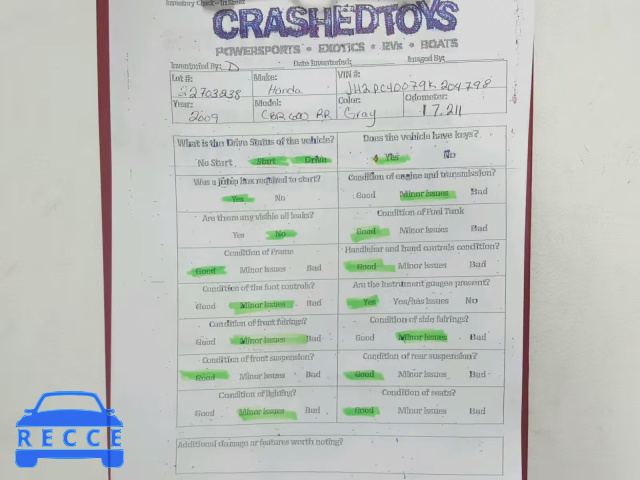 Inventory Check-In Sheet
CRASHEDTOYS
POWERSPORTS • EXOTICS • RVs • BOATS
Inventoried By: D Date Inventoried: Imaged By:
Lot #: Make: VIN #:
22703238 Honda JH2PC40079K204798
Year: Model: Color: Odometer:
2009 CBR600 RR Gray 17,211
What is the Drive Status of the vehicle? Does the vehicle have keys?
No Start Start Drive Yes No
Was a jump box required to start? Condition of engine and transmission?
Yes No Good Minor Issues Bad
Are there any visible oil leaks? Condition of Fuel Tank
Yes No Good Minor Issues Bad
Condition of Frame Handlebar and hand controls condition?
Good Minor Issues Bad Good Minor Issues Bad
Condition of the foot controls? Are the instrument gauges present?
Good Minor Issues Bad Yes Yes/has Issues No
Condition of front fairings? Condition of side fairings?
Good Minor Issues Bad Good Minor Issues Bad
Condition of front suspension? Condition of rear suspension?
Good Minor Issues Bad Good Minor Issues Bad
Condition of lighting? Condition of seats?
Good Minor Issues Bad Good Minor Issues Bad
Additional damage or features worth noting?
RECCE